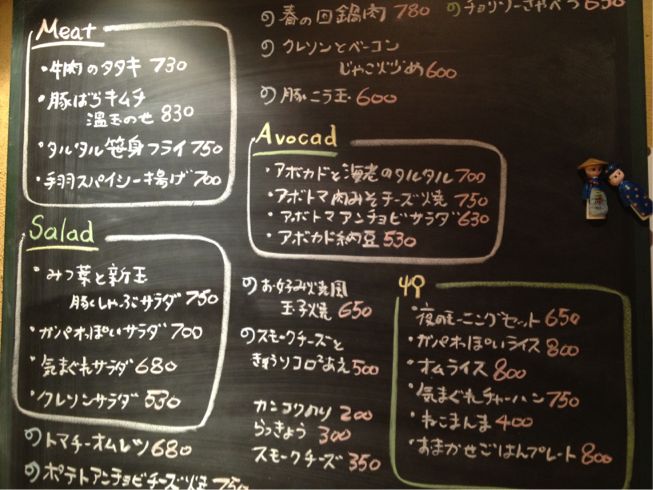 Meat
・牛肉のタタキ 730
・豚ばらキムチ
温玉のせ 830
・タルタル笹身フライ 750
・手羽スパイシー揚げ 700
Salad
・みつ葉と新玉
豚しゃぶサラダ 750
・ガパオっぽいサラダ 700
・気まぐれサラダ 680
・クレソンサラダ 530
のトマチーオムレツ 680
のポテトアンチョビチーズ焼 750
の春の回鍋肉 780
のチョリソーきゃべつ 650
のクレソンとベーコン
じゃこ炒め 600
の豚ニラ玉 600
Avocad
・アボカドと海老のタルタル 700
・アボトマ肉みそチーズ焼 750
・アボトマアンチョビサラダ 630
・アボカド納豆 530
のお好み焼風
玉子焼 650
のスモークチーズと
きゅうりコロコロあえ 500
カンコクのり 200
らっきょう 300
スモークチーズ 350
・夜のモーニングセット 650
・ガパオっぽいライス 800
・オムライス 800
・気まぐれチャーハン 750
・ねこまんま 400
・おまかせごはんプレート 800